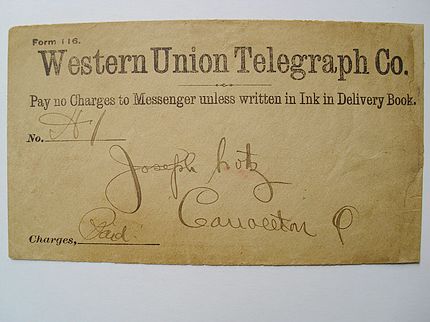 Form 116.
Western Union Telegraph Co.
Pay no Charges to Messenger unless written in Ink in Delivery Book.
No.
Joseph Lotz
O
Charges, Paid.